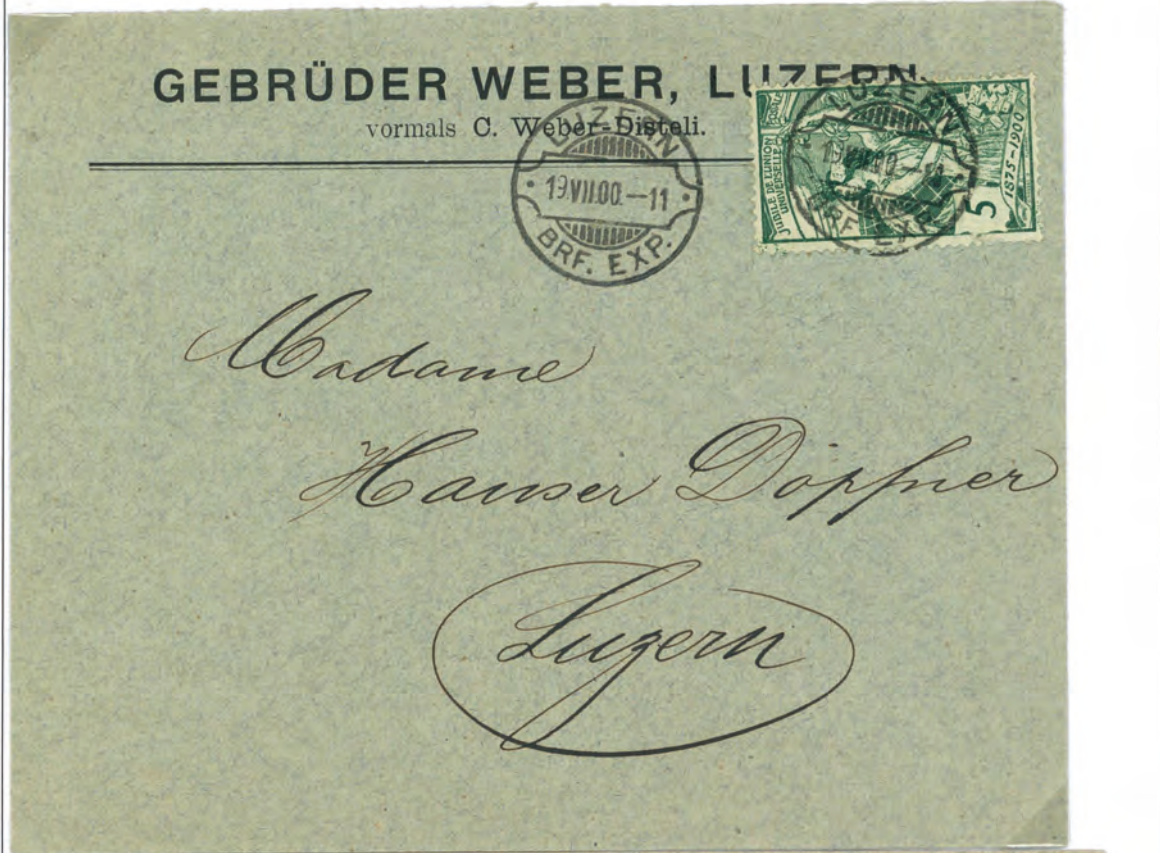 GEBRÜDER WEBER, LUZERN.
vormals C. Weber-Disteli.
LUZERN
19.VII.00.–11
BRF. EXP.
LUZERN
19.VII.00.–11
BRF. EXP.
JUBILÉ DE L'UNION
UNIVERSELLE POSTALE
1875–1900
5
Madame
Hauser Döpfner
Luzern